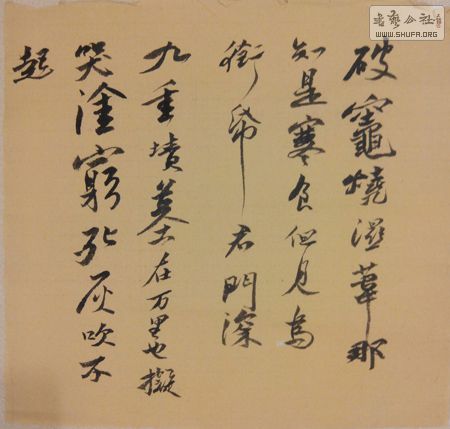 破竈燒濕葦那
知是寒食但見烏
銜帋君門深
九重墳墓在万里也擬
哭塗窮死灰吹不
起
书艺公社
WWW.SHUFA.ORG